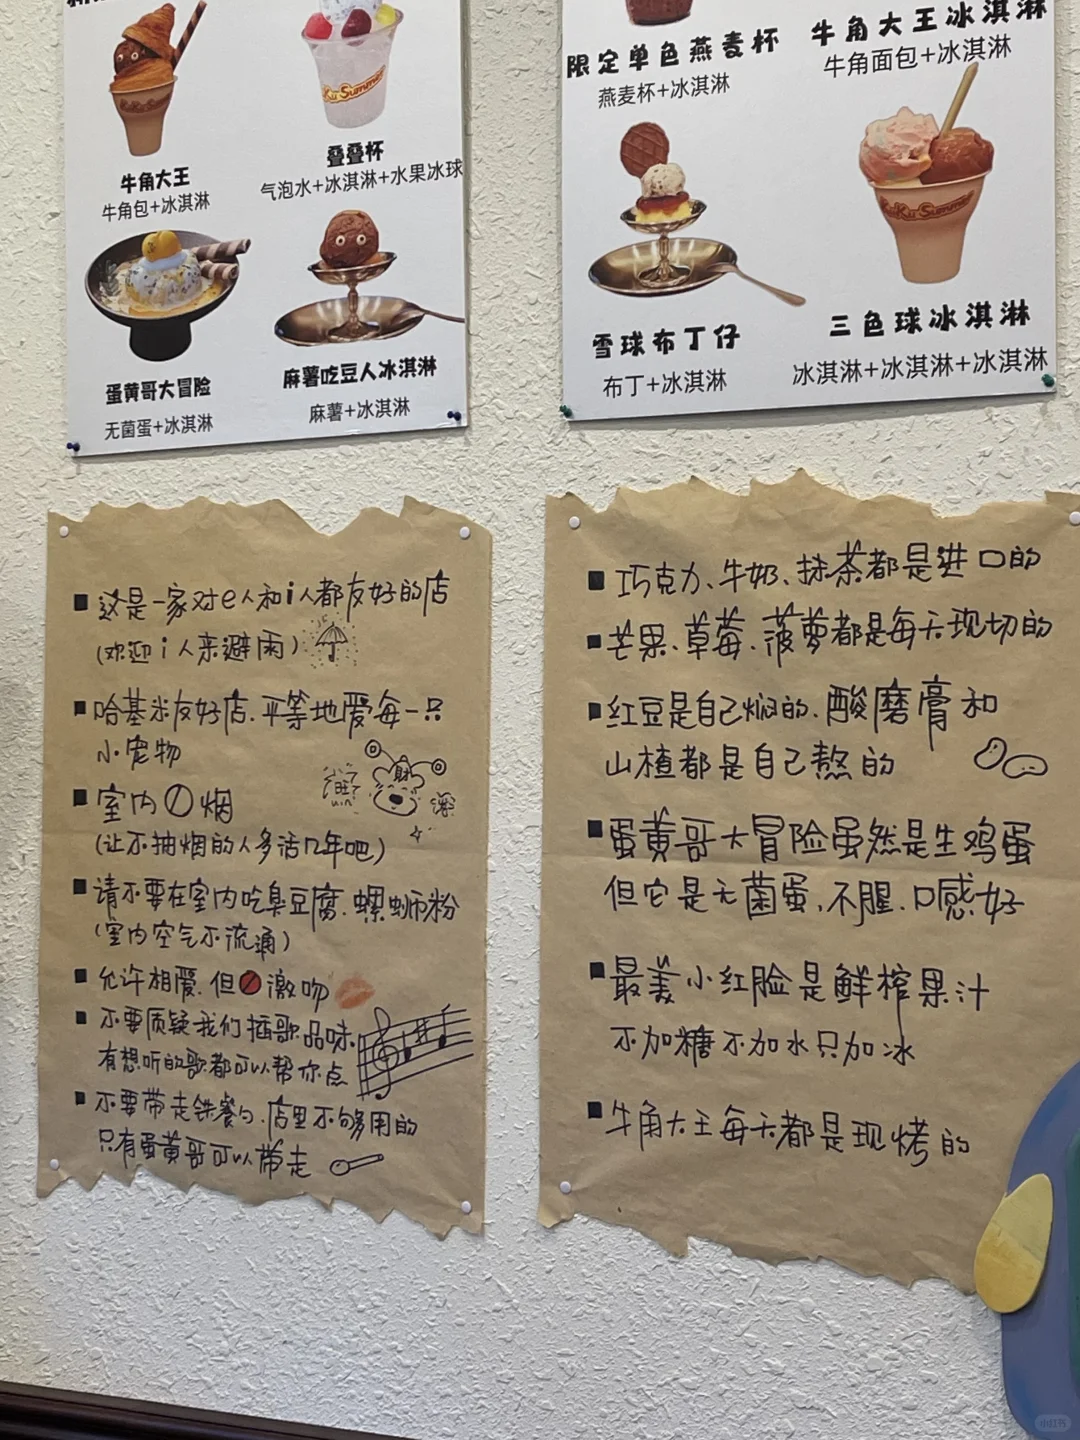 牛角大王
牛角包+冰淇淋
KuKu Summer
叠叠杯
气泡水+冰淇淋+水果冰球
蛋黄哥大冒险
无菌蛋+冰淇淋
麻薯吃豆人冰淇淋
麻薯+冰淇淋
限定单色燕麦杯
燕麦杯+冰淇淋
牛角大王冰淇淋
牛角面包+冰淇淋
KuKu Summer
雪球布丁仔
布丁+冰淇淋
三色球冰淇淋
冰淇淋+冰淇淋+冰淇淋
这是一家对e人和i人都友好的店
(欢迎i人来避雨)
哈基米友好店.平等地爱每一只
小宠物
室内🚫烟
(让不抽烟的人多活几年吧)
请不要在室内吃臭豆腐.螺蛳粉
(室内空气不流通)
允许相爱.但🚫激吻
不要质疑我们播歌品味.
有想听的歌都可以帮你点
不要带走铁餐勺.店里不够用的
只有蛋黄哥可以带走
巧克力、牛奶、抹茶都是进口的
芒果、草莓、菠萝都是每天现切的
红豆是自己焖的.酸磨膏和
山楂都是自己熬的
蛋黄哥大冒险虽然是生鸡蛋
但它是无菌蛋,不腥.口感好
最美小红脸是鲜榨果汁
不加糖不加水只加冰
牛角大王每天都是现烤的
小红书